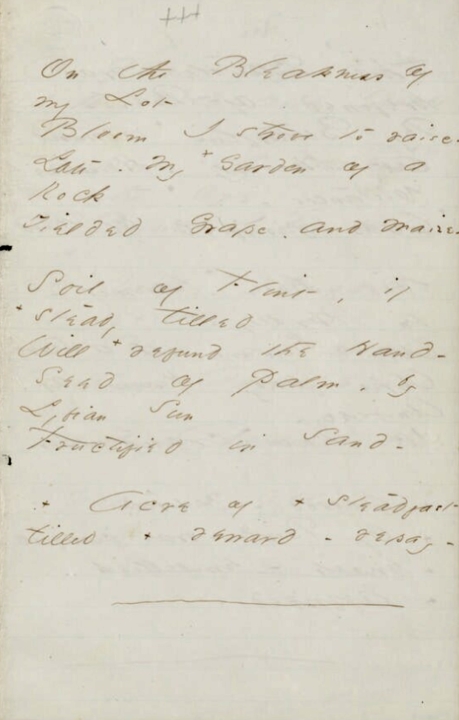 On the Bleakness of
my Lot -
Bloom I strove to raise -
Late - My + Garden of a
Rock
Yielded Grape - and Maize -
Soil of Flint, if
+ steady tilled
Will + refund the Hand -
Seed of Palm, by
Lybian Sun
Fructified in Sand -
+ Acre of + steadfast
tilled + reward - repay -